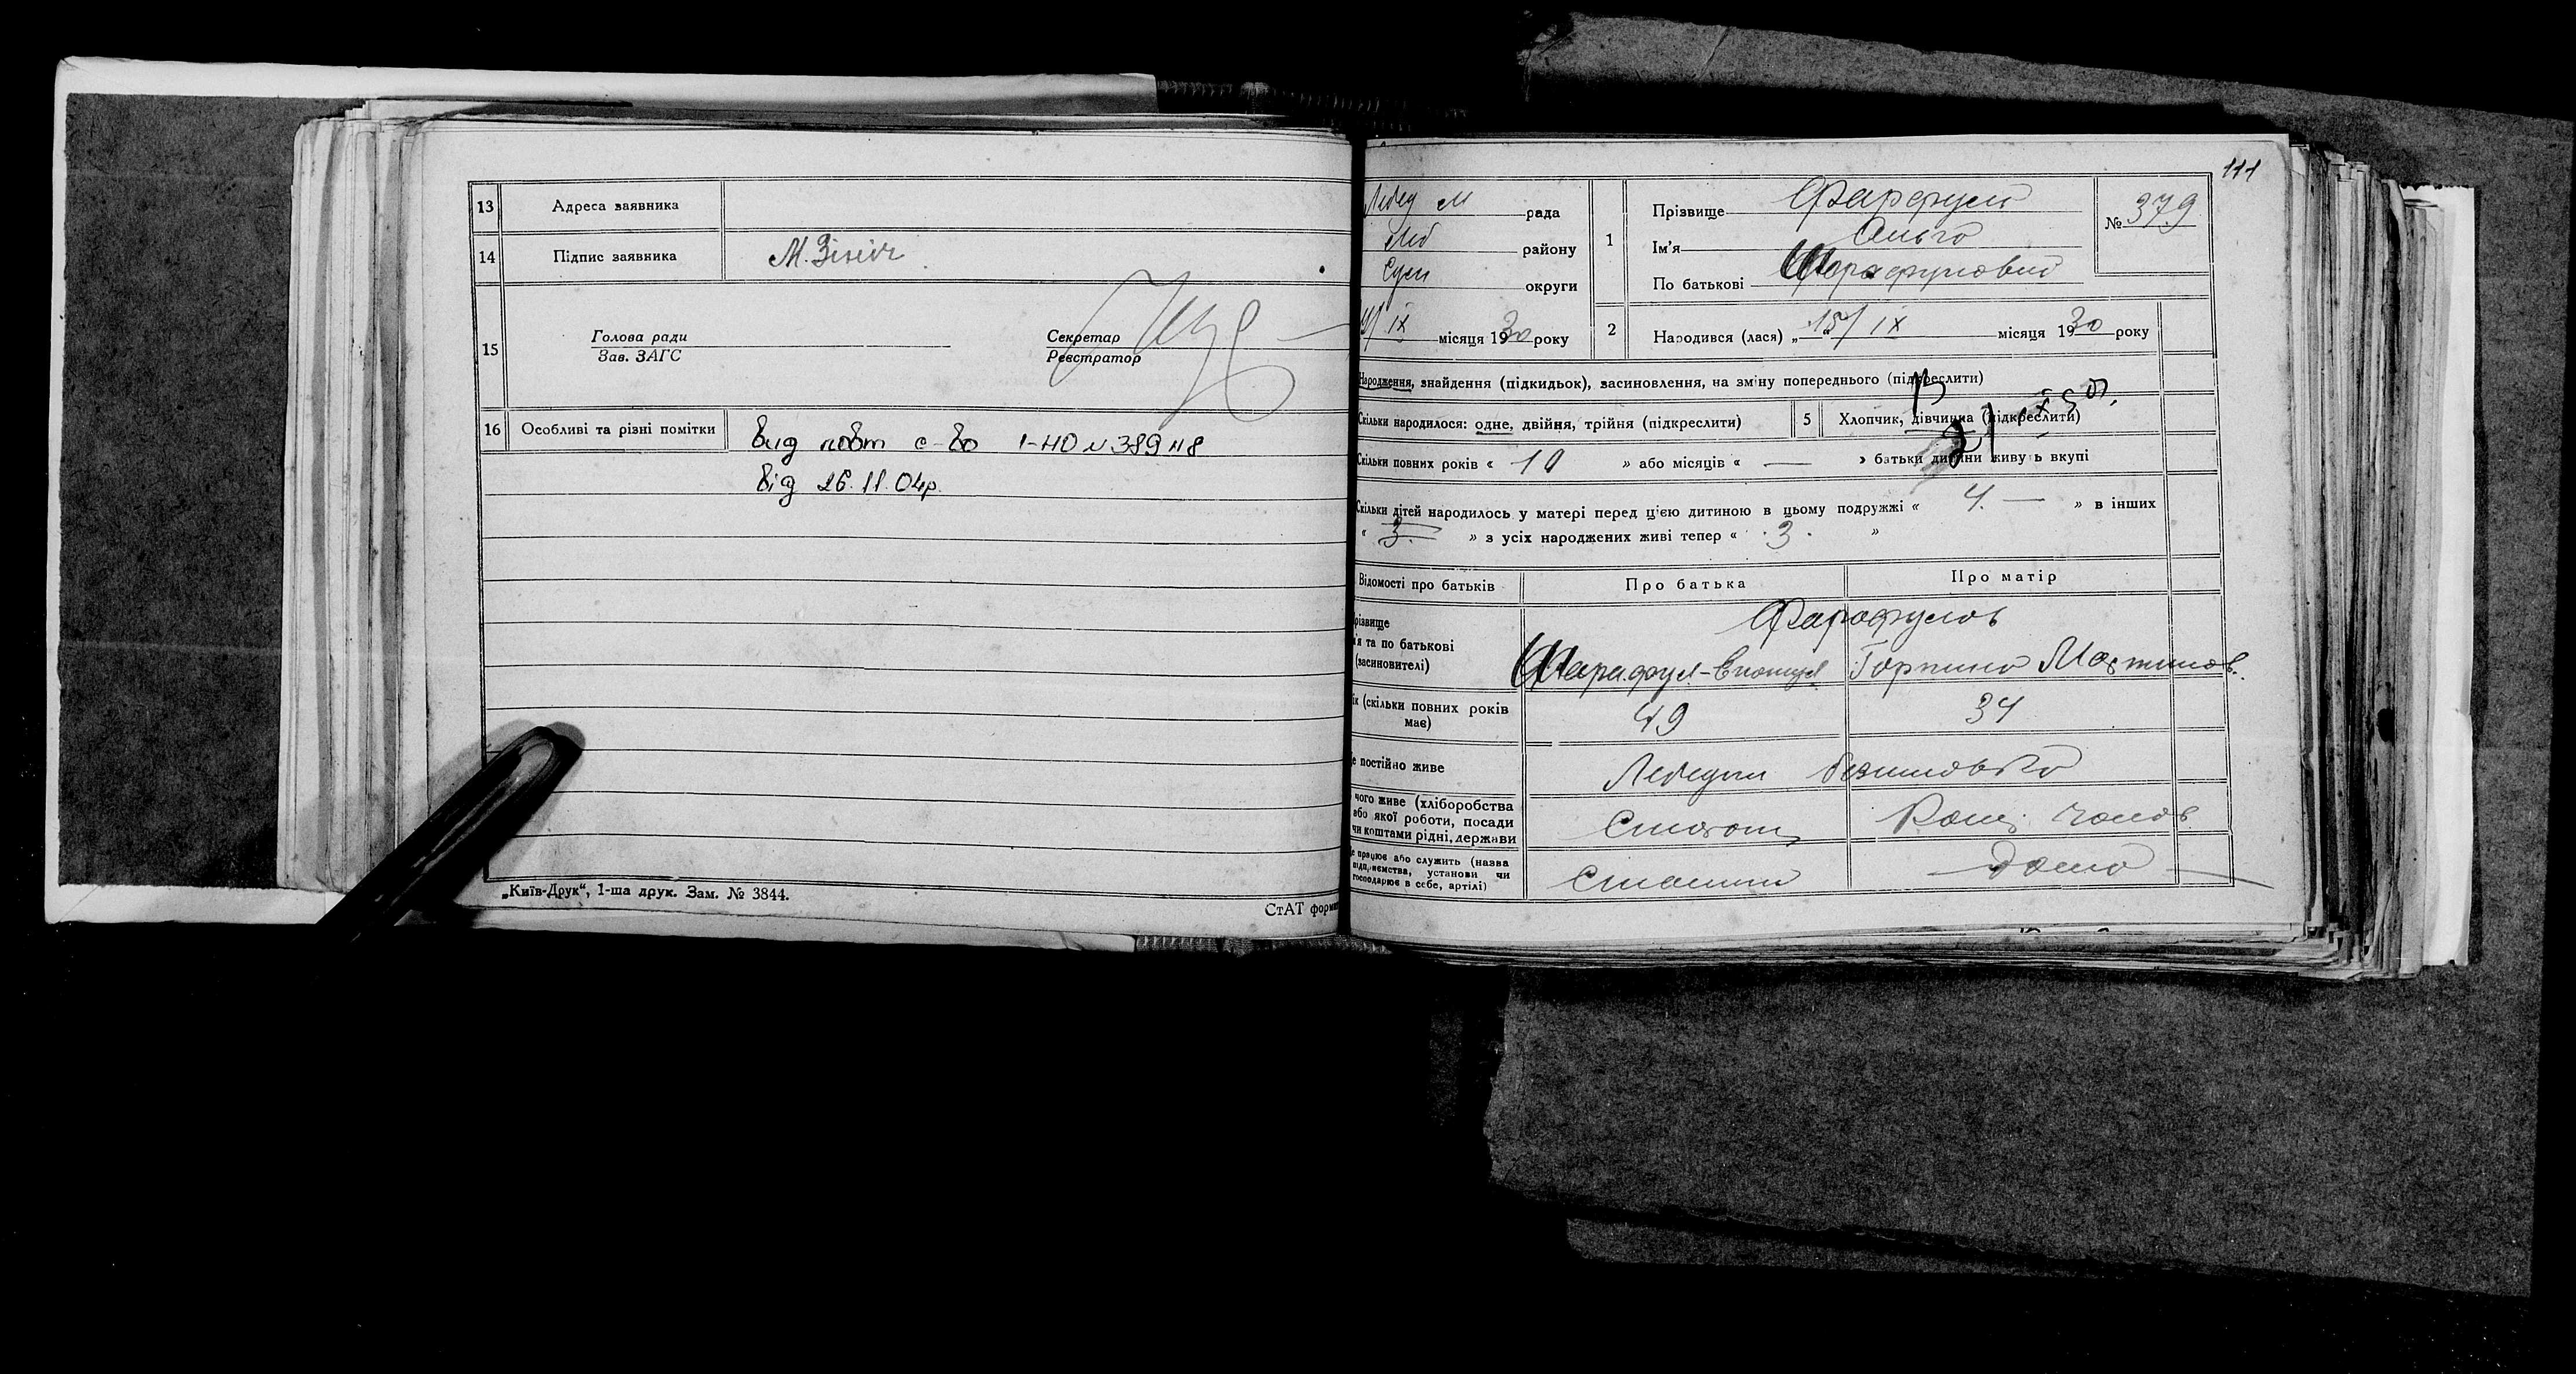 13 Адреса заявника
14 Підпис заявника М. Зініч
15 Голова ради
Зав. ЗАГС
Секретар
Реєстратор
16 Особливі та різні помітки Вид повт с-во 1-НО № 389118
від 26.11.04р.
„Київ-Друк“, 1-ша друк. Зам. № 3844.
СтАТ форм
111
Лебед м рада
Леб округи
Сум району
1 Прізвище Фарфул
Ім'я Ольга
По батькові Шарафуловна
№ 379
IX місяця 1930 року
2 Народився (лася) „15/ IX місяця 1930 року
Народження, знайдення (підкидьок), засиновлення, на зміну попереднього (підкреслити)
Скільки народилося: одне, двійня, трійня (підкреслити)
5 Хлопчик, дівчинка (підкреслити)
Скільки повних років « 10 » або місяців « — » батьки дитини живуть вкупі
Скільки дітей народилось у матері перед цією дитиною в цьому подружжі « 4. — » в інших
« 3. » з усіх народжених живі тепер « 3. »
Відомості про батьків Про батька Про матір
різвище
м'я та по батькові
(засиновителі)
Фарафулов
Шарафул- Горпина Мартинов.
ік (скільки повних років
має) 49 34
е постійно живе Лебедин
чого живе (хліборобства
або якої роботи, посади
чи коштами рідні, держави
чолов
е працює або служить (назва
підприємства, установи чи
господарює в себе, артілі)
дома